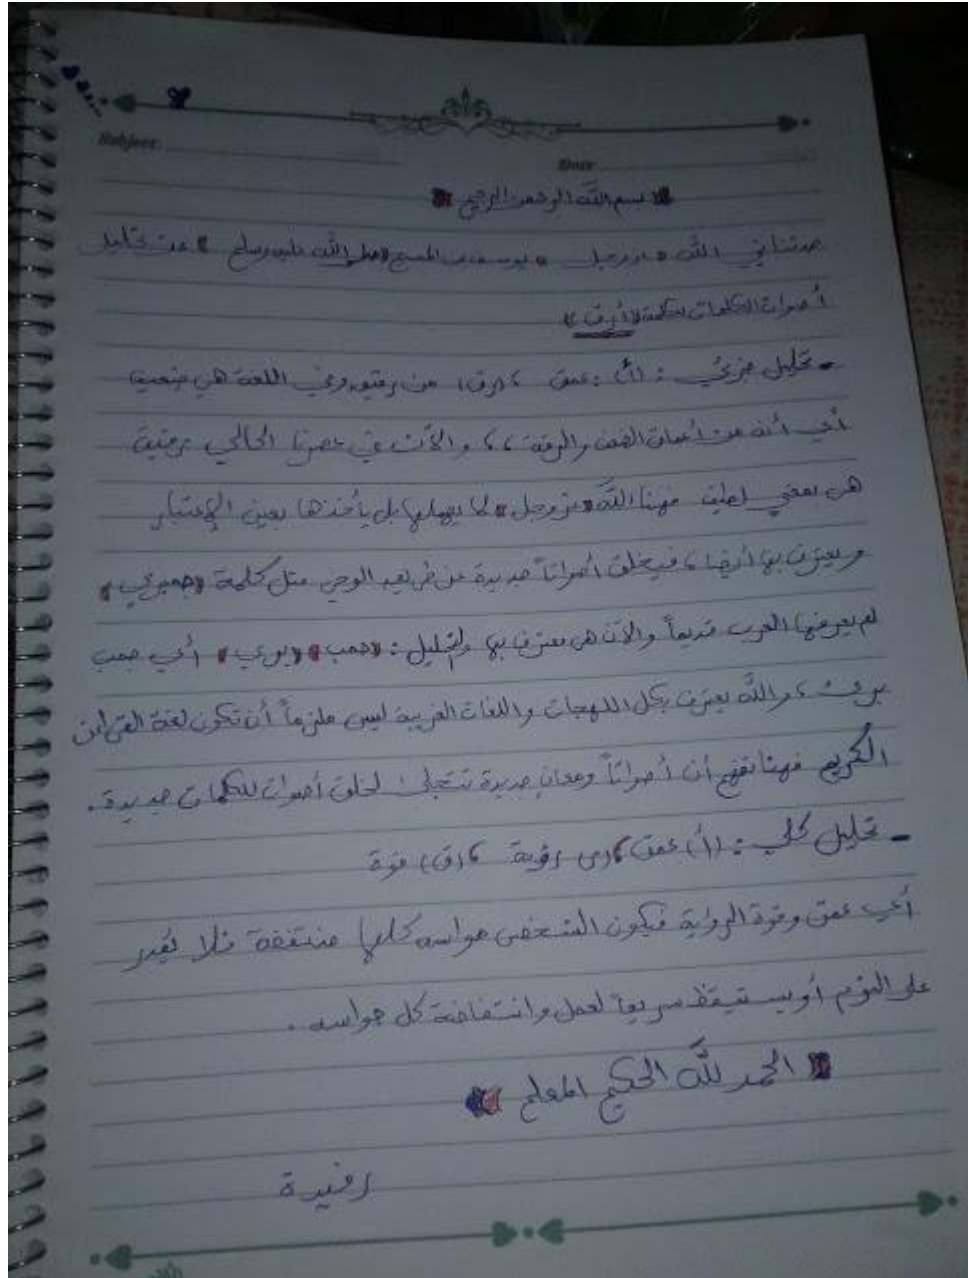 Subject:
Date
بسم الله الرحمن الرحيم
حدثنا نبي الله عزوجل يوسف بن المسيح صلى الله عليه وسلم عن تحليل
أصوات الكلمات لكلمة "أرق"
- تحليل جزئي : (أ) عمق ، (رق) من رقيق وفي اللغة هي ضعيف
أي أنه من أعماق الضعف والرقة ،، والآن في عصرنا الحالي رقيق
هي بمعنى لطيف فهنا الله "عزوجل" لا يهملها بل يأخذها بعين الإعتبار
ويعترف بها أيضا ، فيخلق أصواتاً جديدة عن طريق الوحي مثل كلمة
لم يعرفها العرب قديماً والآن هي معترف بها والتحليل : أي
، والله يعترف بكل اللهجات واللغات الغريبة ليس ملزماً أن تكون لغة القرآن
الكريم فهنا نفهم أن أصواتاً ومعانٍ جديدة تتجلى لخلق أصوات للكلمات جديدة .
- تحليل كلي : (أ) عمق ، (ر) رؤية ، (ق) قوة
أي عمق وقوة الرؤية فيكون الشخص حواسه كلها منتفضة فلا يقدر
على النوم أو يستيقظ سريعاً لعمل وانتفاضة كل حواسه .
الحمد لله الحكيم المعلم
رفيدة